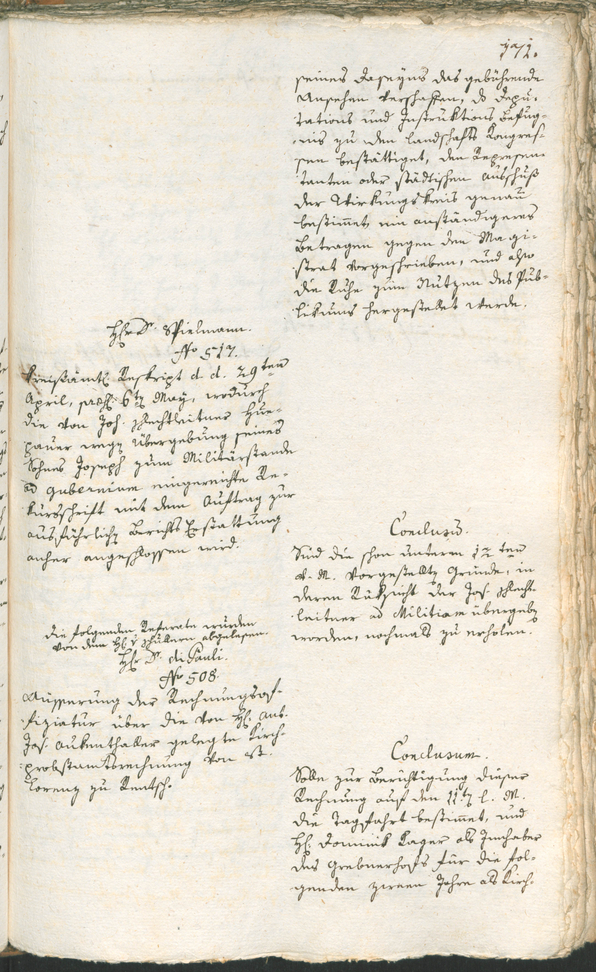 171.
seines Daseyns das gebührende
Ansehen verschaffen, die Depu-
tations und Instruktions Befug-
nis zu den Landschafts Kongres-
sen bestättiget, den Represen-
tanten oder städtischen Ausschuß
der Wirkungskreis genau
bestimmt, ein anständigeres
Betragen gegen den Magi-
strat vorgeschrieben, und also
die Ruhe zum Nutzen des Pub-
likums hergestellet werde.
Hr. D. Spielmann.
No 517.
Kreisämtl. Reskript d. d. 29ten
April, 6ten May, wodurch
die von Joh. Schlechtleitner
wegen Übergebung seines
Sohnes Joseph zum Militärstande
ad Gubernium eingereichte Re-
kursschrift mit dem Auftrag zur
ausführlichen Berichts Erstattung
anher angeschlossen wird.
Conclusum.
Sind die schon unterm 12ten
v. M. vorgestellte Gründe, in
deren Rüksicht der Jos. Schlecht-
leitner ad Militiam übergeben
worden, nochmals zu erholen.
Die folgenden Referate wurden
von dem H. v. abgelesen.
Hr. D. di Pauli.
No 508.
Äusserung der Rechnungsof-
fiziatur über die von H. Ant.
Jos. Aukenthaller gelegte Kirch-
probstamtsrechnung von St.
Lorenz zu Rentsch.
Conclusum.
Solle zur Berichtigung dieser
Rechnung auf den 11ten l. M.
die Tagfahrt bestimmt, und
H. Dominik Kager als Innhaber
des Grebnerhofs für die fol-
genden zween Jahre als Kirch-